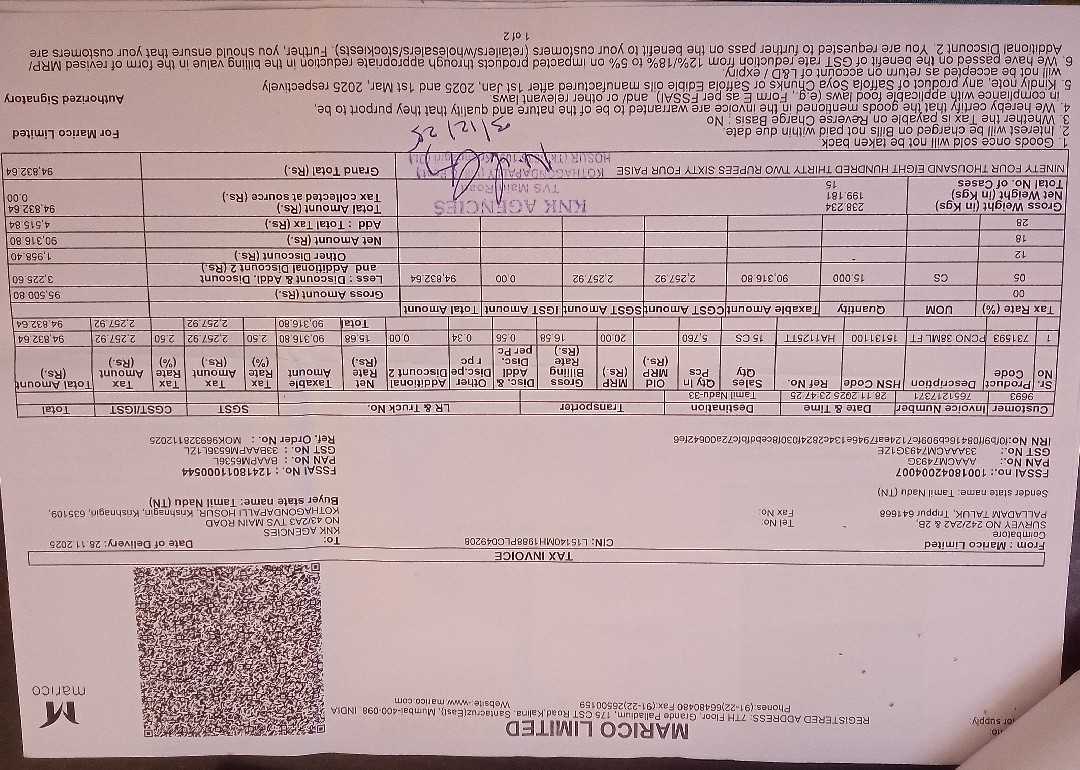 MARICO LIMITED
REGISTERED ADDRESS: 7TH Floor, Grande Palladium, 175 CST Road,Kalina, Santacruz(East), Mumbai-400-098. INDIA
Phones: (91-22)66480480 Fax:(91-22)26500159
Website:-www.marico.com
marico
or supply
TAX INVOICE
From : Marico Limited
Coimbatore
SURVEY NO 242/2A2 & 2B,
PALLADAM TALUK, Tirppur 641668
Tel No:
Fax No:
Sender state name: Tamil Nadu (TN)
CIN: L15140MH1988PLC049208
To:
KNK AGENCIES
NO 43/2A3 TVS MAIN ROAD
KOTHAGONDAPALLI HOSUR, Krishnagin, Krishnagin, 635109,
Buyer state name: Tamil Nadu (TN)
Date of Delivery: 28.11.2025
FSSAI no.: 10018042004007
PAN No.: AAACM7493G
GST No.: 33AAACM7493G1ZE
FSSAI No. : 12418011000544
PAN No. : BAAPM6536L
GST No. : 33BAAPM6536L1ZL
Ref. Order No. : MOK9693328112025
Customer Invoice Number Date & Time Destination Transporter LR & Truck No. SGST CGST/IGST Total
9693 7651217371 28.11.2025 23:47:25 Tamil Nadu-33
Sr. No Product Code Description HSN Code Ref No. Sales Qty Qty In Pcs Old MRP (Rs.) MRP (Rs.) Gross Billing Rate (Rs.) Disc. & Addl Disc. per Pc Other Disc.per pc Additional Discount 2 Net Rate (Rs.) Taxable Amount Tax Rate (%) Tax Amount (Rs.) Tax Rate (%) Tax Amount (Rs.) Total Amount (Rs.)
1 731593 PCNO 38ML FT 15131100 HA1125TT 15 CS 5,760 20.00 16.58 0.56 0.34 0.00 15.68 90,316.80 2.50 2,257.92 2.50 2,257.92 94,832.64
Total 90,316.80 2,257.92 2,257.92 94,832.64
Tax Rate (%) UOM Quantity Taxable Amount CGST Amount SGST Amount IGST Amount Total Amount
00
05 CS 15.000 90,316.80 2,257.92 2,257.92 0.00 94,832.64
12
18
28
Gross Amount (Rs.) 95,500.80
Less : Discount & Addl. Discount and Additional Discount 2 (Rs.) 3,225.60
Other Discount (Rs.) 1,958.40
Net Amount (Rs.) 90,316.80
Add : Total Tax (Rs.) 4,515.84
Total Amount (Rs.) 94,832.64
Tax collected at source (Rs.) 0.00
Gross Weight (in Kgs) 238.234
Net Weight (in Kgs) 199.181
Total No. of Cases 15
KNK AGENCIES
TVS Main Road
NINETY FOUR THOUSAND EIGHT HUNDRED THIRTY TWO RUPEES SIXTY FOUR PAISE
Grand Total (Rs.) 94,832.64
3/12/25
1. Goods once sold will not be taken back
2. Interest will be charged on Bills not paid within due date.
3. Whether the Tax is payable on Reverse Charge Basis : No
4. We hereby certify that the goods mentioned in the invoice are warranted to be of the nature and quality that they purport to be,
in compliance with applicable food laws (e.g., Form E as per FSSAI) and/ or other relevant laws
5. Kindly note, any product of Saffola Soya Chunks or Saffola Edible oils manufactured after 1st Jan, 2025 and 1st Mar, 2025 respectively
will not be accepted as return on account of L&D / expiry.
6. We have passed on the benefit of GST rate reduction from 12%/18% to 5% on impacted products through appropriate reduction in the billing value in the form of revised MRP/
Additional Discount 2. You are requested to further pass on the benefit to your customers (retailers/wholesalers/stockiests). Further, you should ensure that your customers are
For Marico Limited
Authorized Signatory
1 of 2